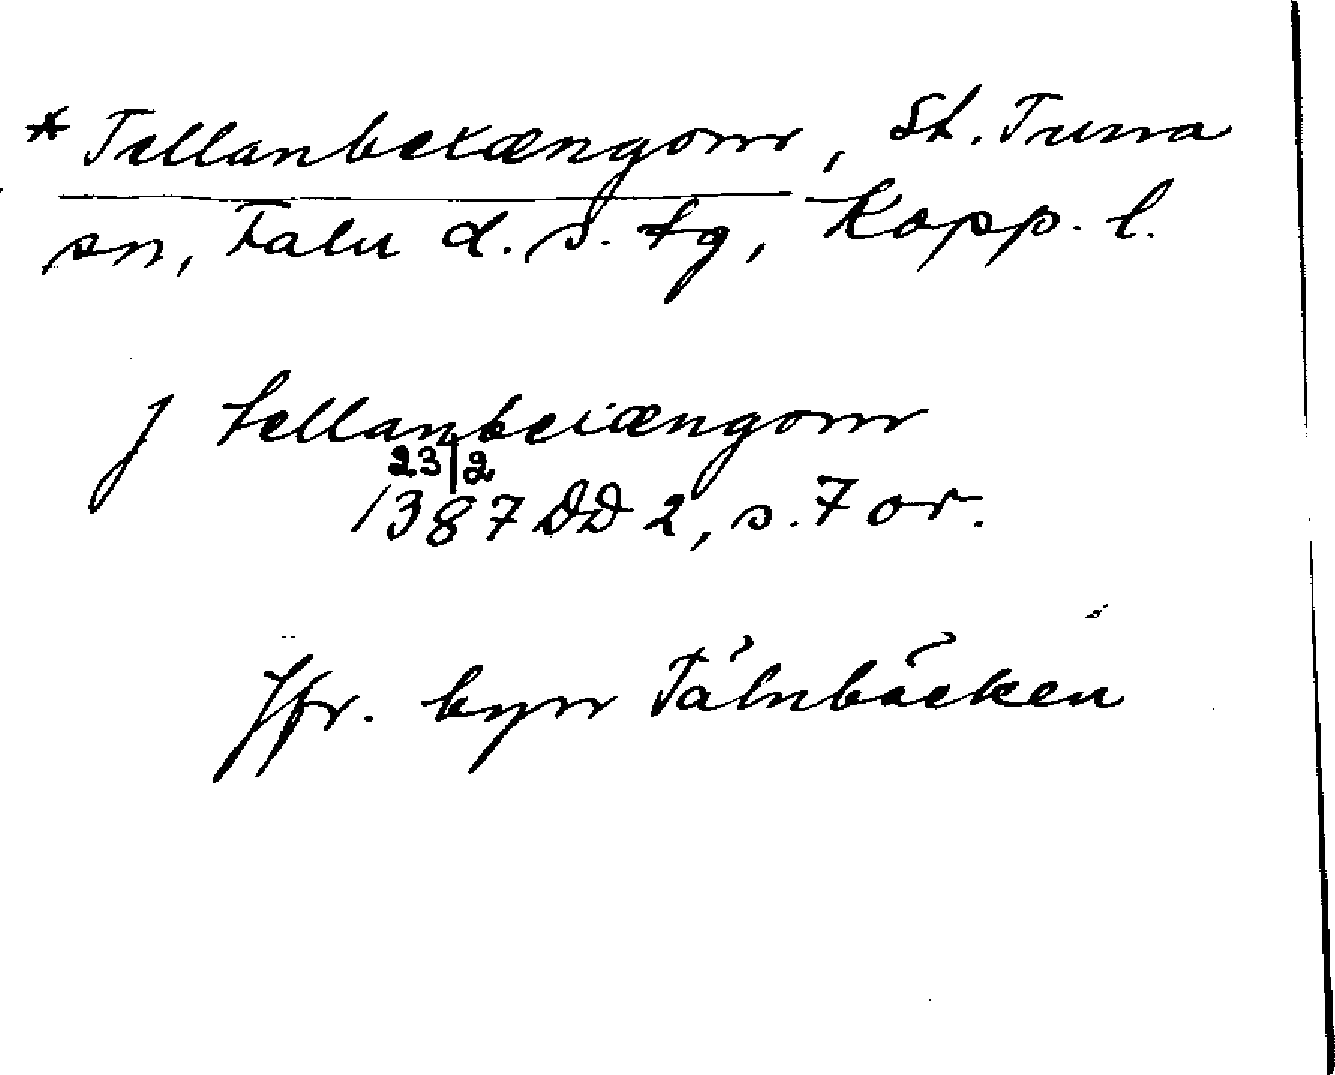 * Tellanbekængom, St. Tuna
sn, Falu d. s. fg, Kopp. l.
J tellanbeiængom
23/2
1387 DD 2, s. 7 or.
Jfr. byn Tålnbäcken